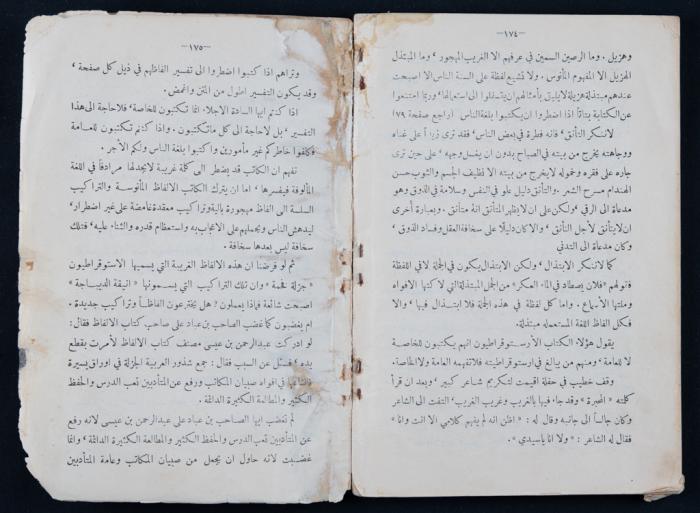 —١٧٤—
وهزيل . وما الرصين السمين في عرفهم الا الغريب المهجور ‘ وما المبتذل
الهزيل الا المفهوم المأنوس . ولا تشيع لفظة على السنة الناس الا اصبحت
عندهم مبتذلة هزيلة لا يليق بأمثالهم ان يتنازلوا الى استعمالها ‘ وربما امتنعوا
عن الكتابة بتاتاً اذا اضطروا ان يكتبوا بلغة الناس ( راجع صفحة ٧٩ )
لا ننكر التأنق ‘ فانه فطرة في بعض الناس ‘ فقد ترى ثرياً على غناه
ووجاهته يخرج من بيته في الصباح بدون ان يغسل وجهه ‘ على حين ترى
جاره على فقره وخموله لا يخرج من بيته الا نظيف الجسم والثوب حسن
الهندام مسرح الشعر . والتأنق دليل علو في النفس وسلامة في الذوق وهو
مدعاة الى الرقي ‘ ولكن على ان لا يظهر المتأنق انهُ متأنق . وبعبارة أخرى
ان لا يتأنق لأجل التأنق ‘ والا كان دليلًا على سخافة العقل وفساد الذوق ‘
وكان مدعاة الى التدني
كما لا ننكر الابتذال ‘ ولكن الابتذال يكون في الجملة لا في اللفظة
فانه قولهم « فلان يصطاد في الماء العكر » من الجمل المبتذلة التي لاكتها الافواه
وملتها الأسماع . واما كل لفظة في هذه الجملة فلا ابتذال فيها ‘ والا
فكل الفاظ اللغة المستعملة مبتذلة .
يقول هؤلاء الكتاب الأرستوقراطيون انهم يكتبون للخاصة
لا للعامة ‘ ومنهم من يبالغ في ارستوقراطيته فلا تفهمه العامة ولا الخاصة .
وقف خطيب في حفلة اقيمت لتكريم شاعر كبير ‘ وبعد ان قرأ
كلمته « المحبرة » وقد جاء فيها بالغريب وغريب الغريب ‘ التفت الى الشاعر
وكان جالساً الى جانبه وقال له : « اظن انه لم يفهم كلامي الا انت وانا »
فقال له الشاعر : « ولا انا يا سيدي » .
—١٧٥—
وتراهم اذا كتبوا اضطروا الى تفسير الفاظهم في ذيل كل صفحة ‘
وقد يكون التفسير اطول من المتن واغمض .
اذا كنتم ايها السادة الاجلاء انما تكتبون للخاصة ‘ فلا حاجة الى هذا
التفسير ‘ بل لا حاجة الى كل ما تكتبون . واذا كنتم تكتبون للعامة
فكلفوا خاطركم غير مأمورين واكتبوا بلغة الناس ولكم الأجر .
نفهم ان الكاتب قد يضطر الى كلمة غريبة لا يجد لها مرادفاً في اللغة
المألوفة فيفسرها ‘ اما ان يترك الكاتب الالفاظ المأنوسة والتراكيب
السلسة الى الفاظ مهجورة بالية وتراكيب معقدة غامضة على غير اضطرار ‘
ليدهش الناس ويحملهم على الاعجاب به واستعظام قدره والثناء عليه ‘ فتلك
سخافة ليس بعدها سخافة .
ثم لو فرضنا ان هذه الالفاظ الغريبة التي يسميها الاستوقراطيون
« جزلة فخمة » وان تلك التراكيب التي يسمونها « انيقة الديباجة »
اصبحت شائعة فماذا يعملون ? هل يخترعون الفاظاً وتراكيب جديدة .
ام يغضبون كما غضب الصاحب بن عباد على صاحب كتاب الالفاظ فقال :
لو ادركت عبد الرحمن بن عيسى مصنف كتاب الالفاظ لأمرت بقطع
يده ‘ فسئل عن السبب فقال : جمع شذور العربية الجزلة في اوراق يسيرة
فأضاعها في افواه صبيان المكاتب ورفع عن المتأدبين تعب الدرس والحفظ
الكثير والمطالعة الكثيرة الدائمة .
لم تغضب ايها الصاحب بن عباد على عبد الرحمن بن عيسى لانه رفع
عن المتأدبين تعب الدرس والحفظ الكثير والمطالعة الكثيرة الدائمة ‘ وانما
غضبت لانه حاول ان يجعل من صبيان المكاتب وعامة المتأدبين